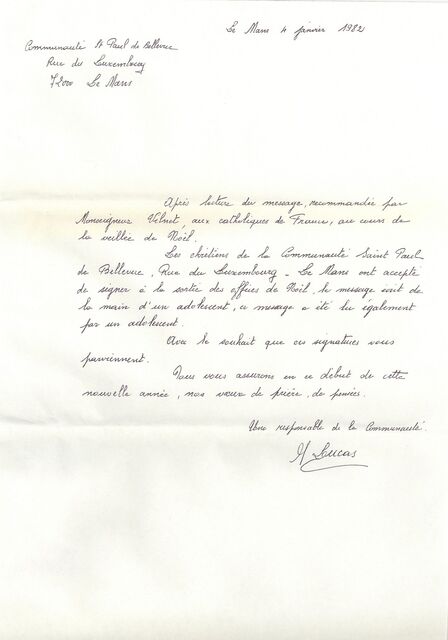 Le Mans 4 janvier 1982
Communauté St Paul de Bellevue
Rue du Luxembourg
72000 Le Mans
Après lecture du message, recommandée par
Monseigneur Vilnet, aux catholiques de France, au cours de
la veillée de Noël.
Les chrétiens de la Communauté Saint Paul
de Bellevue, Rue du Luxembourg - Le Mans ont accepté
de signer à la sortie des offices de Noël, le message écrit de
la main d'un adolescent, ce message a été lu également
par un adolescent.
Avec le souhait que ces signatures vous
parviennent.
Nous vous assurons en ce début de cette
nouvelle année, nos vœux de prière, de pensées.
Une responsable de la Communauté.
M Lucas